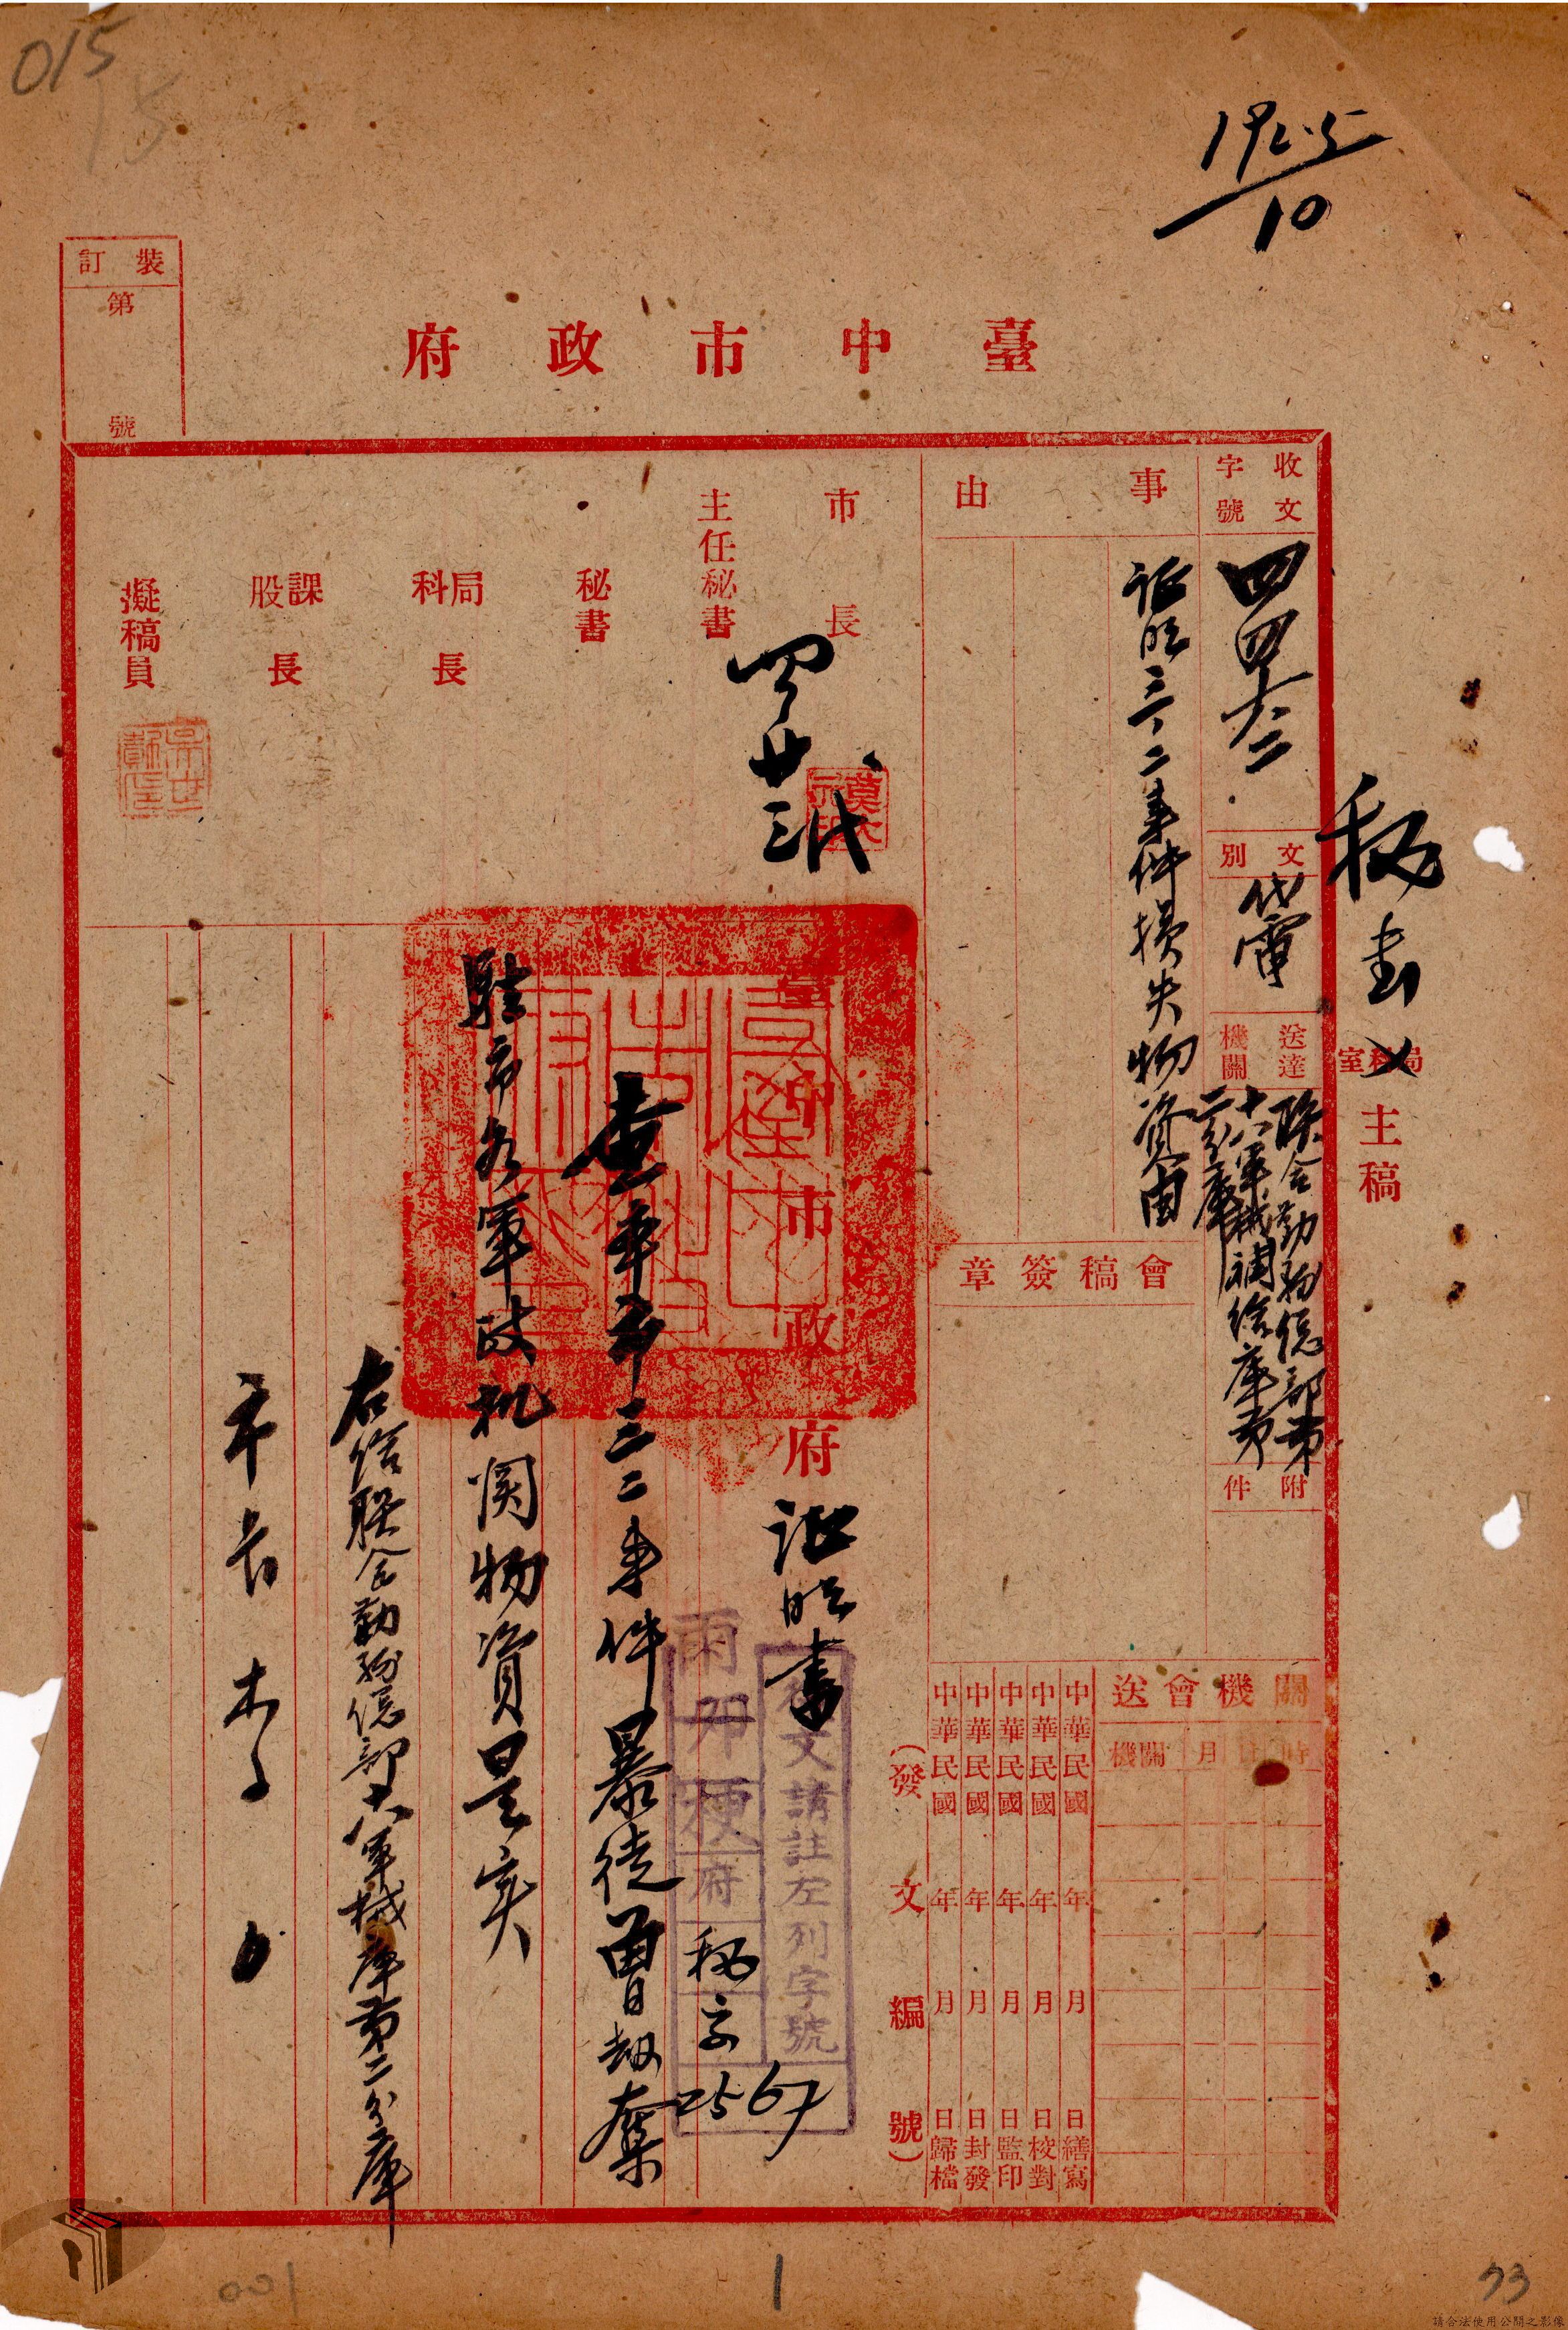 015
15
1925/10
裝訂
第 號
臺中市政府
收文字號
四四六二
文別
代電
送達機關
聯合勤务總部第
十八軍械補給庫第
二分庫
附件
秘書 局科室主稿
事由
証明三、二事件損失物資由
會稿簽章
關機會送
機關 月 日 時
中華民國 年 月 日繕寫
中華民國 年 月 日校對
中華民國 年 月 日監印
中華民國 年 月 日封發
中華民國 年 月 日歸檔
(發文編號)
市長
主任秘書
秘書
局科長
課股長
擬稿員
四 廿三 代
臺中市政府証明書
文請註左列字號
卯梗府
秘字
2567
查本市三二事件暴徒曾劫奪
駐市各軍政机関物資是实
右给联合勤务總部十八軍械庫第二分庫
市長
001
1
93
請合法使用公開之影像